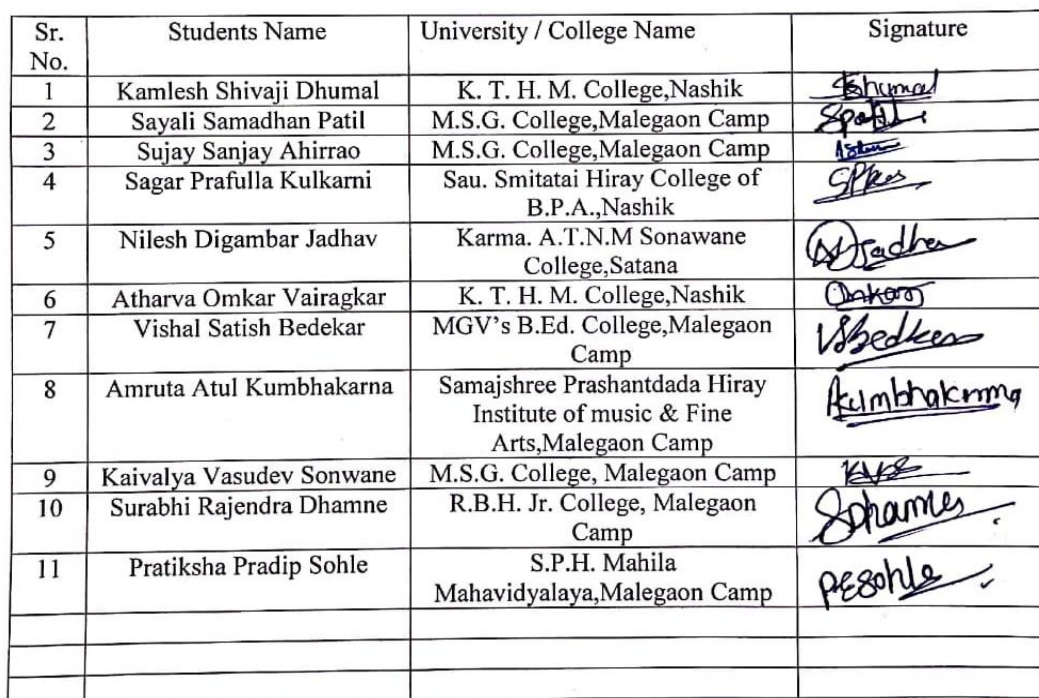 Sr. No. Students Name University / College Name Signature
1 Kamlesh Shivaji Dhumal K. T. H. M. College,Nashik Dhumal
2 Sayali Samadhan Patil M.S.G. College,Malegaon Camp SPatil
3 Sujay Sanjay Ahirrao M.S.G. College,Malegaon Camp
4 Sagar Prafulla Kulkarni Sau. Smitatai Hiray College of
B.P.A.,Nashik
5 Nilesh Digambar Jadhav Karma. A.T.N.M Sonawane
College,Satana
6 Atharva Omkar Vairagkar K. T. H. M. College,Nashik
7 Vishal Satish Bedekar MGV's B.Ed. College,Malegaon
Camp
8 Amruta Atul Kumbhakarna Samajshree Prashantdada Hiray
Institute of music & Fine
Arts,Malegaon Camp
9 Kaivalya Vasudev Sonwane M.S.G. College, Malegaon Camp KVS
10 Surabhi Rajendra Dhamne R.B.H. Jr. College, Malegaon
Camp
11 Pratiksha Pradip Sohle S.P.H. Mahila
Mahavidyalaya,Malegaon Camp